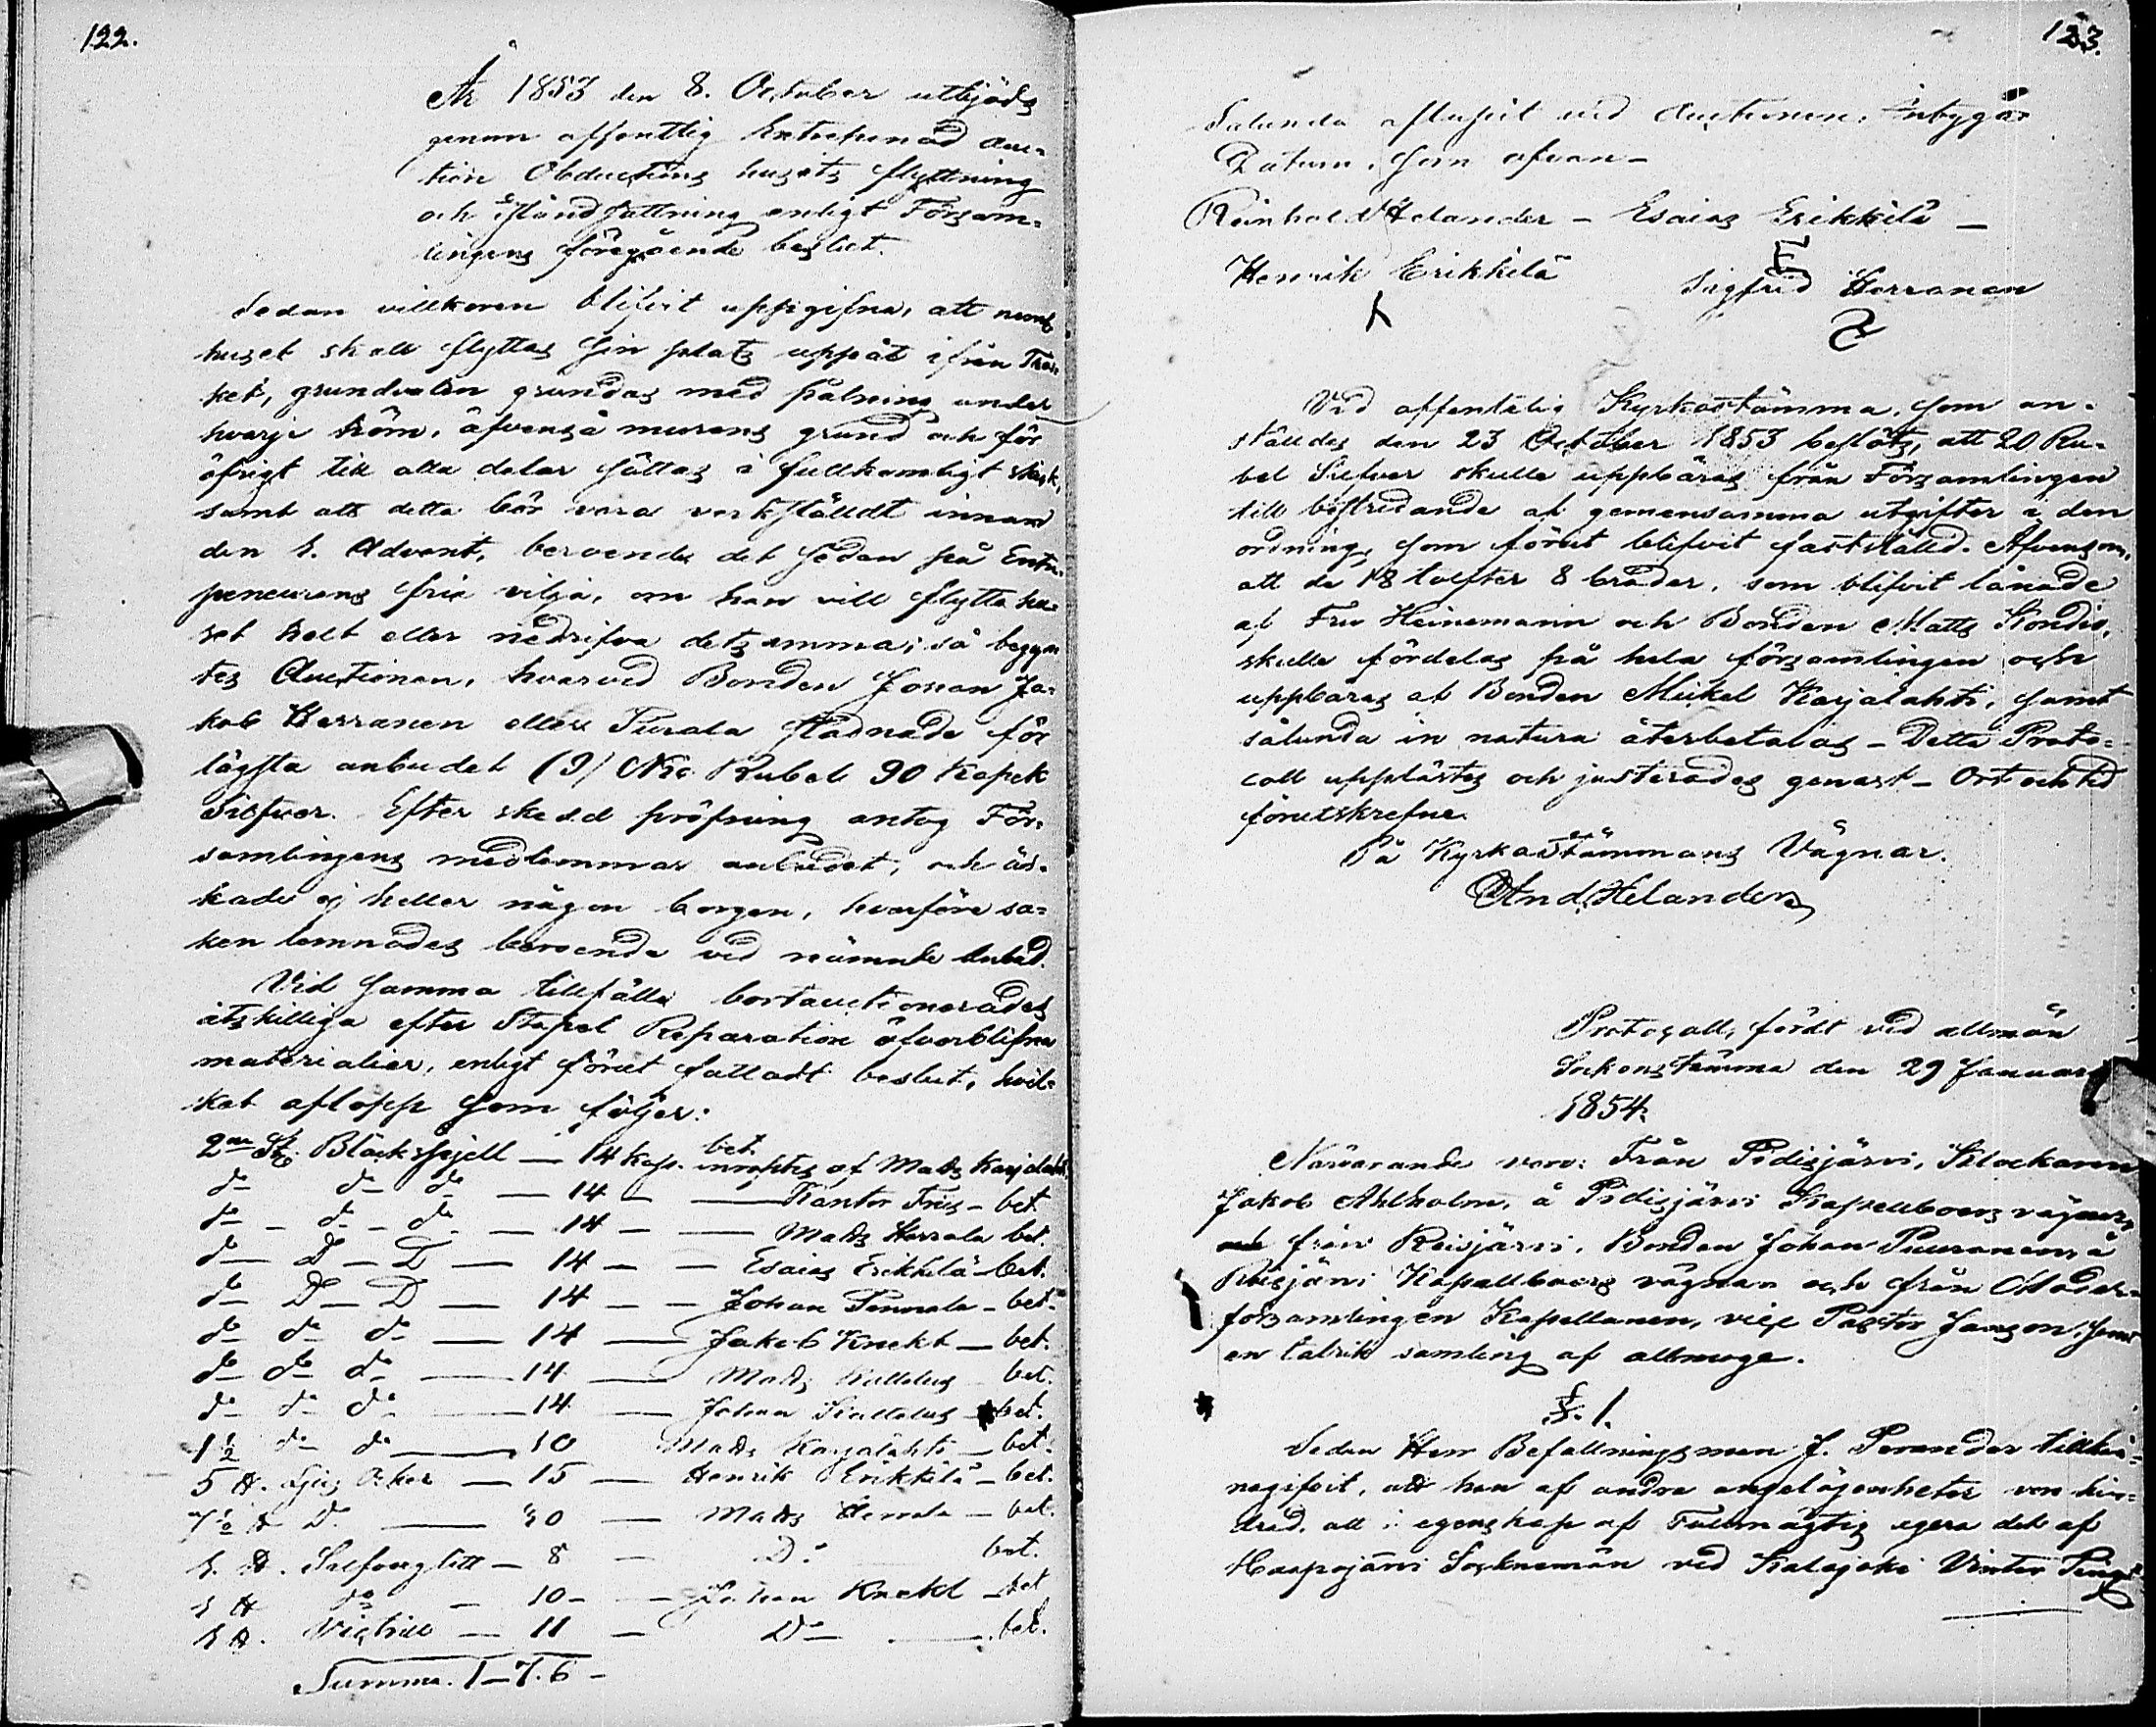 122.
År 1853 den 8. October utbjöds
genom offentlig Entreprenad Auc-
tion Obductions husets flyttning
och iståndsattning enligt Försam-
lingens föregående beslut.
Sedan villkoren blifvit uppgifna, att nemde
huset skall flyttas sin plats uppåt ifrån Träs-
ket, grundvalen grundas med pålning under
hvarje hörn, äfvenså murens grund och för
öfrigt till alla delar sättas i fullkomligt skick,
samt att detta bör vara verkställdt innan
den 1. Advent, beroende det sedan på Entre-
peneurens fria vilja, om han vill flytta hu-
set helt eller nedrifva detsamma; så begyn
tes Auctionen, hvarvid Bonden Johan Ja-
kob Herranen eller Turala stadnade för
lägsta anbudet (9) Nio Rubel 90 Kopek
Silfver. Efter skedd pröfning antog För-
samlingens medlemmar anbudet, och äs-
kade ej heller någon borgen, hvarföre sa-
ken lemnades beroende vid nämnde Anbud.
Vid samma tillfälle bortauctionerades
åtskilliga efter Stapel Reparation öfverblifna
materialier, enligt förut fattadt beslut, hvil-
ket aflopp som följer:
2ne St. Bläckspjell — 14 Kop. inroptes af Mats Karjalahti, bet.
do do do — 14 — Kantor Friis — bet
do — do — do — 14 — Mats Herrala bet.
do — D — D — 14 — Esaias Erikkilä — bet.
do D — D — 14 — Johan Pennala — bet.
do do do — 14 — Jakob Knekt — bet.
do do do — 14 — Mats Kallelus bet.
do do do — 14 — Johan Kallelus — bet.
1½ do do — 10 Mats Karjalahti — bet.
5 ℔. Ljus Oker — 15 — Henrik Erikkilä — bet.
7½ ℔ D. — 30 — Mats — bet.
1. ℔. Silfverglitt — 8 — D:o bet.
1 ℔ do — 10 — Johan Knekt — bet
1 ℔. Victrill — 11 — D:o — bet.
Summa. 1 — 7. 6 —
123.
Sålunda aflupit vid Auctionen,
Datum, som ofvan —
Reinhold Helander — Esaias Erikkilä —
Henrik Erikkilä Sigfrid Herranen
Vid offentelig Kyrkostämma, som an-
ställdes den 23 October 1853 beslöts, att 20 Ru-
bel Silfver skulle uppbäras från Församlingen
till bestridande af gemensamma utgifter i den
ordning, som förut blifvit fastställd. Äfvensom,
att de 18 tolfter 8 bräder, som blifvit lånade
af Fru Heinemann och Bonden Matts Kondio,
skulle fördelas på hela församlingen och
uppbäras af Bonden Mickel Karjalahti, samt
sålunda in natura återbetalas — Detta Proto-
coll upplästes och justerades genast — Ort och tid
förutskrefne.
På Kyrkostämmans Vägnar.
And. Helander
Protocoll, fördt vid allmän
Sockenstämma den 29 Januari
1854.
Närvarande voro: Från Pidisjärvi, Klockaren
Jakob Ahlholm, å Pidisjärvi Kapellboers vägnar,
från Reisjärvi, Bonden Johan Puuranen, å
Reisjärvi Kapellboers vägnar och från Moder-
församlingen Kapellanen, vice Pastor Janson, samt
en talrik samling af allmoge.
§. 1.
Sedan Herr Befallningsman J. Perander tillkän-
nagifvit, att han af andra angelägenheter vore hin-
drad, att i egenskap af Fullmägtig egera det af
Haapajärvi Sockneman vid Kalajoki Vinter Ting